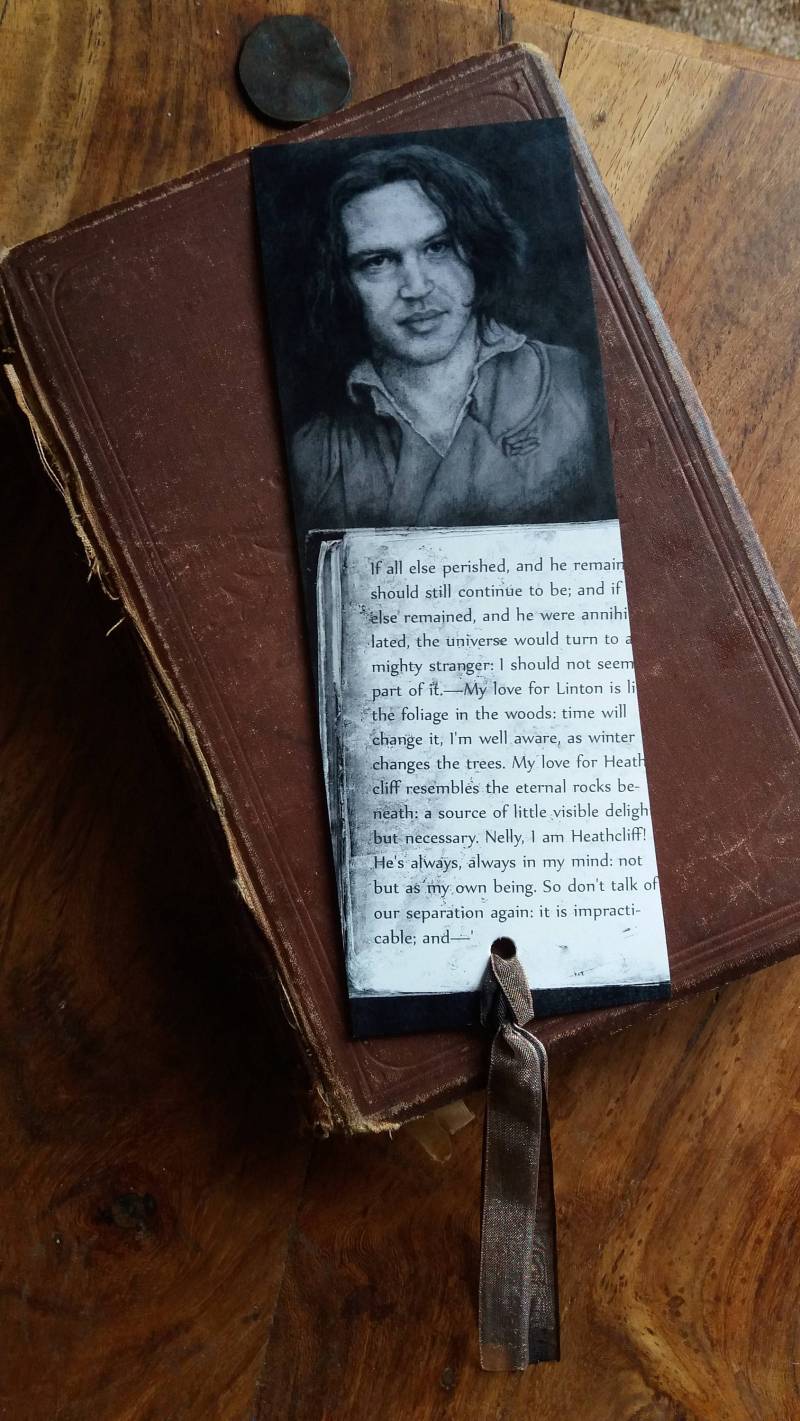 If all else perished, and he remain
should still continue to be; and if
else remained, and he were annihi
lated, the universe would turn to a
mighty stranger: I should not seem
part of it.—My love for Linton is li
the foliage in the woods: time will
change it, I'm well aware, as winter
changes the trees. My love for Heath
cliff resembles the eternal rocks be-
neath: a source of little visible deligh
but necessary. Nelly, I am Heathcliff!
He's always, always in my mind: not
but as my own being. So don't talk of
our separation again: it is impracti-
cable; and—'